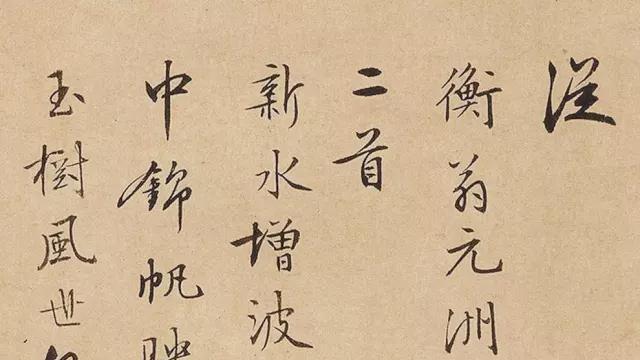 從
衡翁元洲
二首
新水增波
中錦帆
玉樹風世